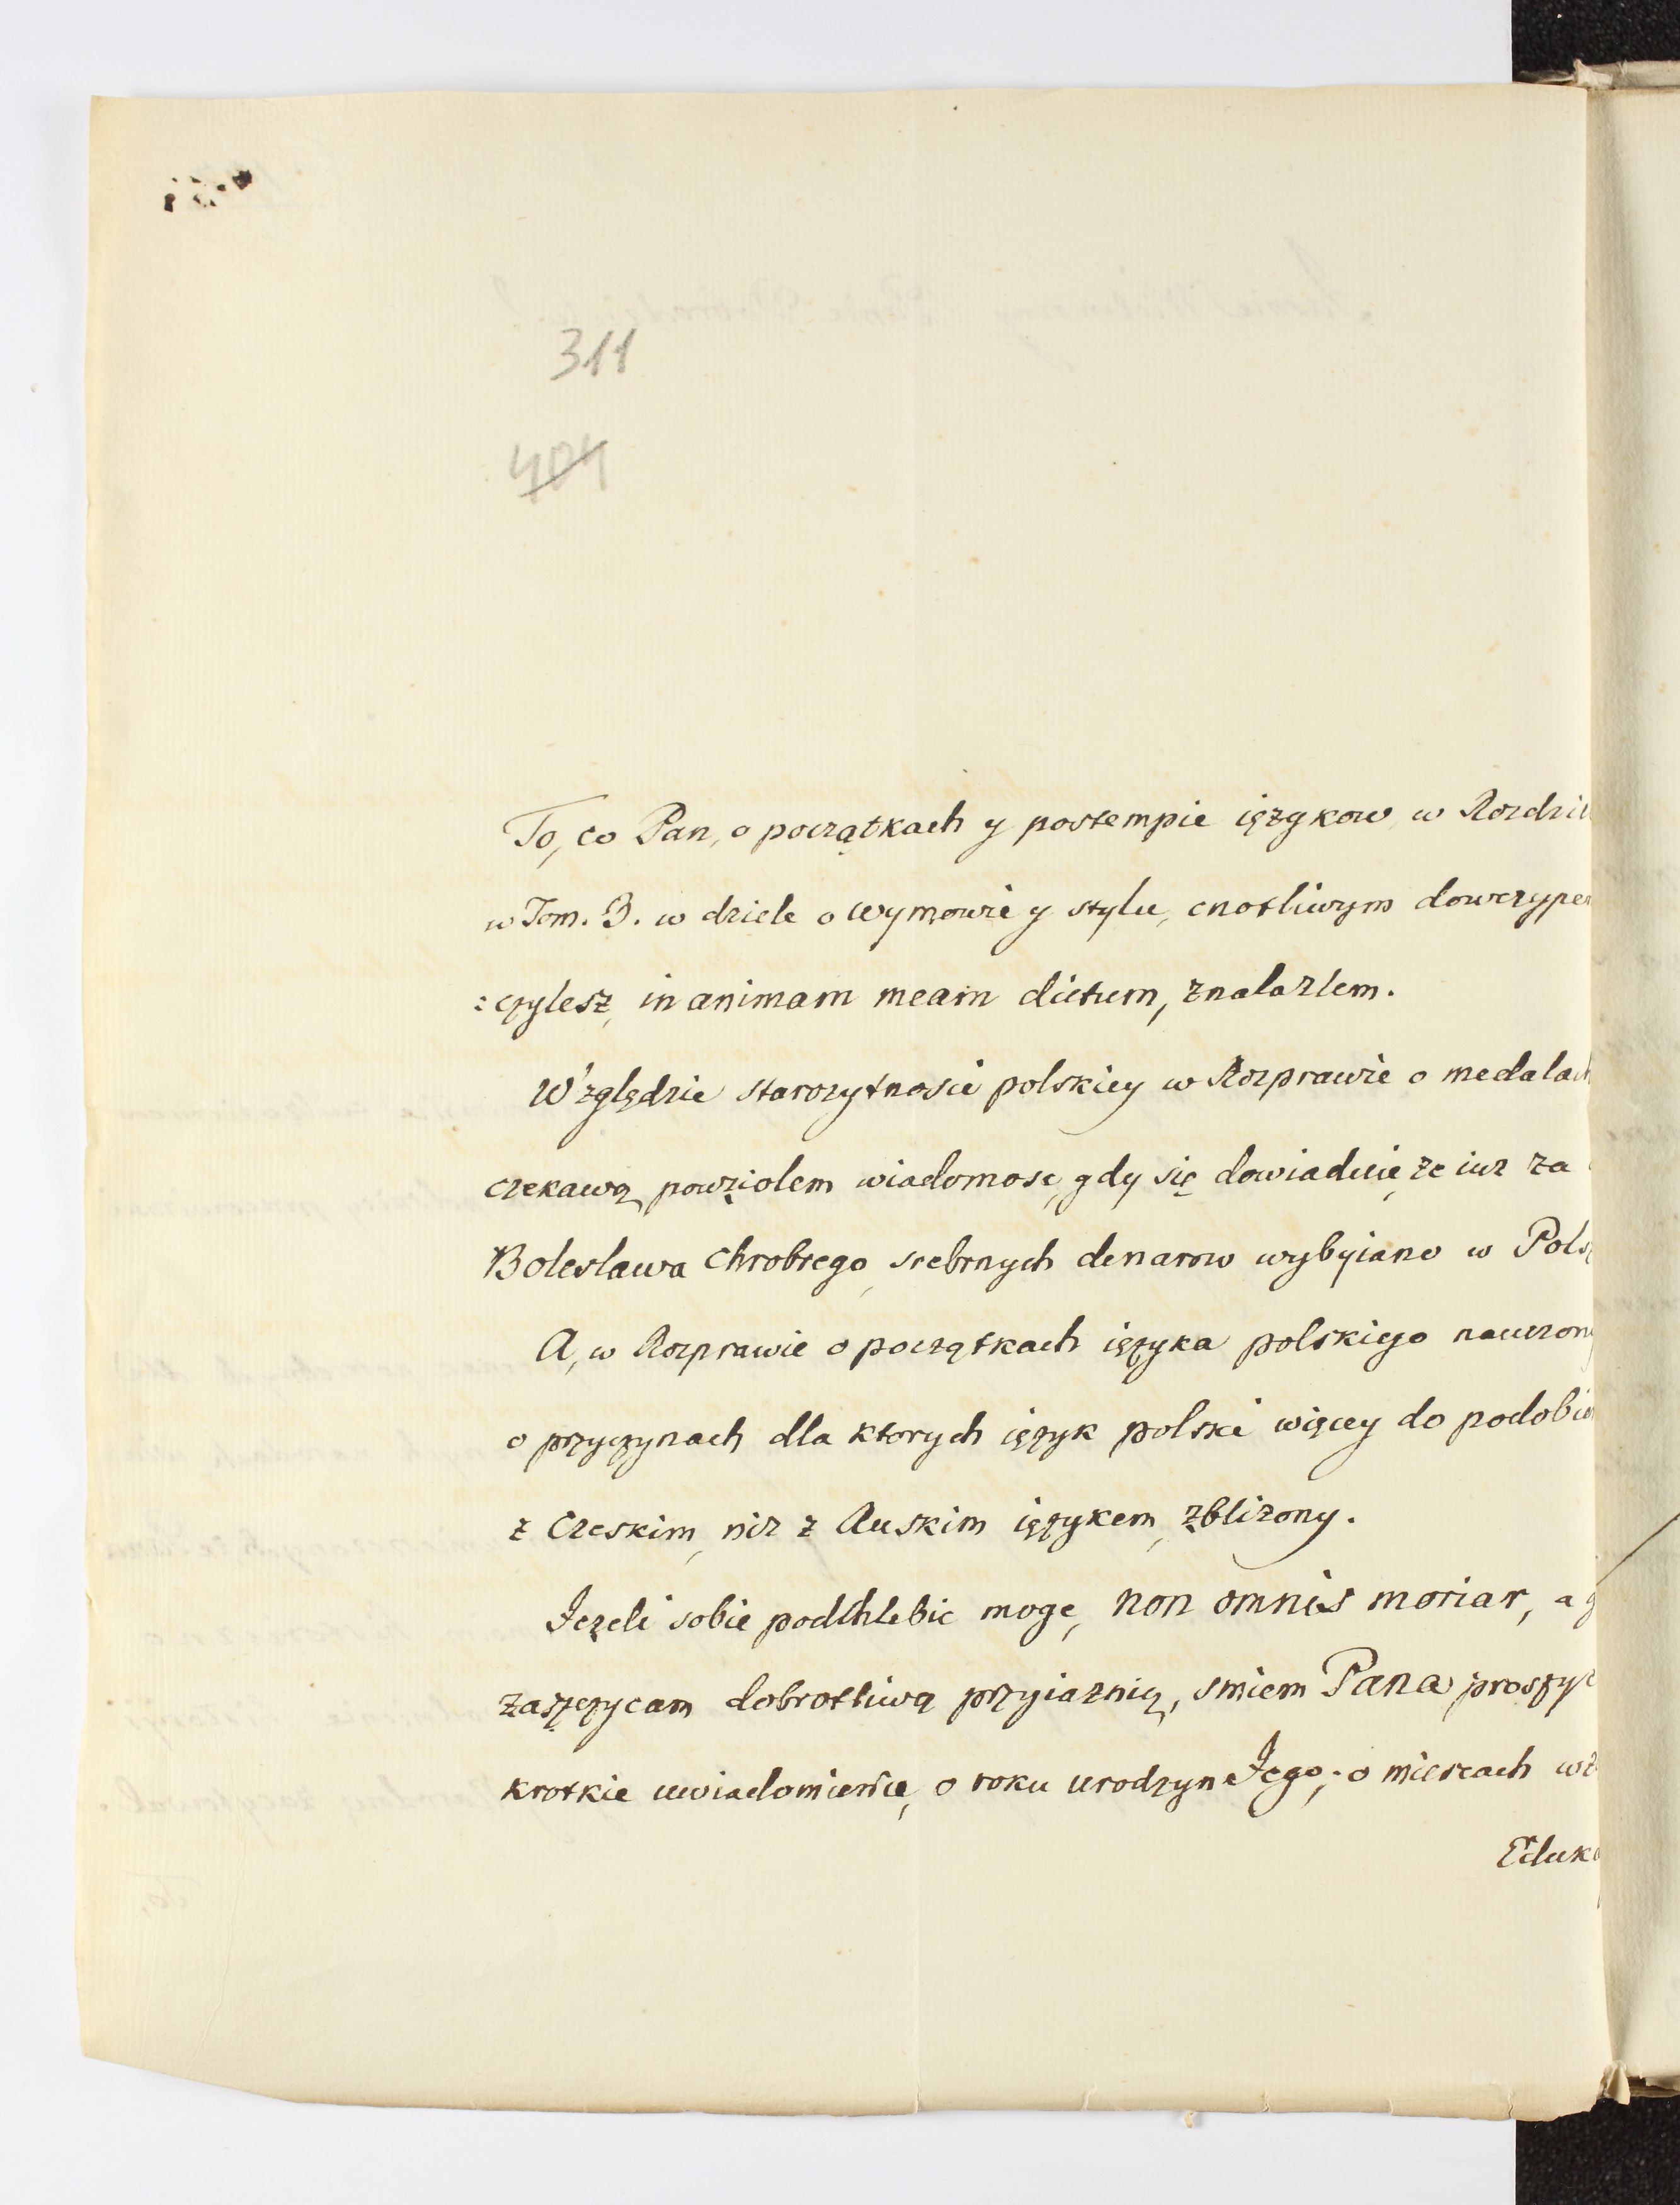 311
404
To, co Pan, o początkach y postempie ięzykow, w Rozdzi
w Tom. 3. w dziele o wymowie y stylu, cnotliwym dowczype
:czylesz, in animam meam dictum, znalazlem.
Względzie starozytnosci polskiey w Rozprawie o medalach
czekawą powziolem wiadomosc, gdy się dowiaduię, ze iuz za
Boleslawa Chrobrego, srebrnych denarow wybyiano w Pols
A, w Rozprawie o początkach ięzyka polskiego nauczony
o przyczynach dla ktorych ięzyk polski więcey do podobie
z Czeskim, niz z Ruskim ięzykem, zblizony.
Jezeli sobie podchlebic mogę, non omnis moriar, a
zaszczycam dobrotliwą przyiaznią, smiem Pana proszyc
krotkie uwiadomienie, o roku urodzyn Jego; o miescach
Eduk